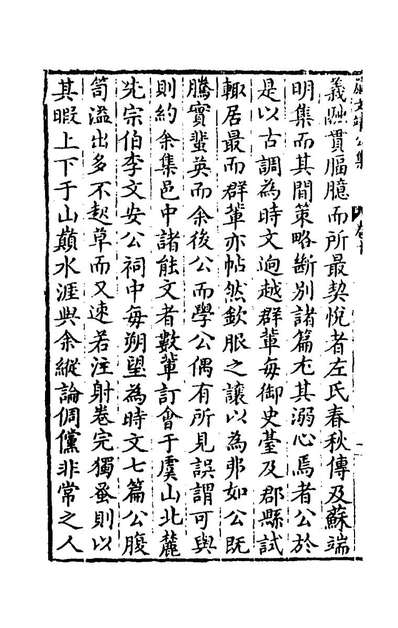 義融貫膈臆而所最契悅者左氏春秋傳及蘇端
明集而其間策略斷別諸篇尤其溺心焉者公於
是以古調為時文逈越群軰每御史䑓及郡縣試
輙居最而群軰亦帖然欽服之讓以為弗如公旣
騰實蜚英而余後公而學公偶有所見誤謂可與
則約余集邑中諸能文者數軰訂會于虞山北麓
先宗伯李文安公祠中每朔望為時文七篇公腹
笥溢出多不起草而又速若注射卷完獨蚤則以
其暇上下于山巔水涯與余縱論倜儻非常之人